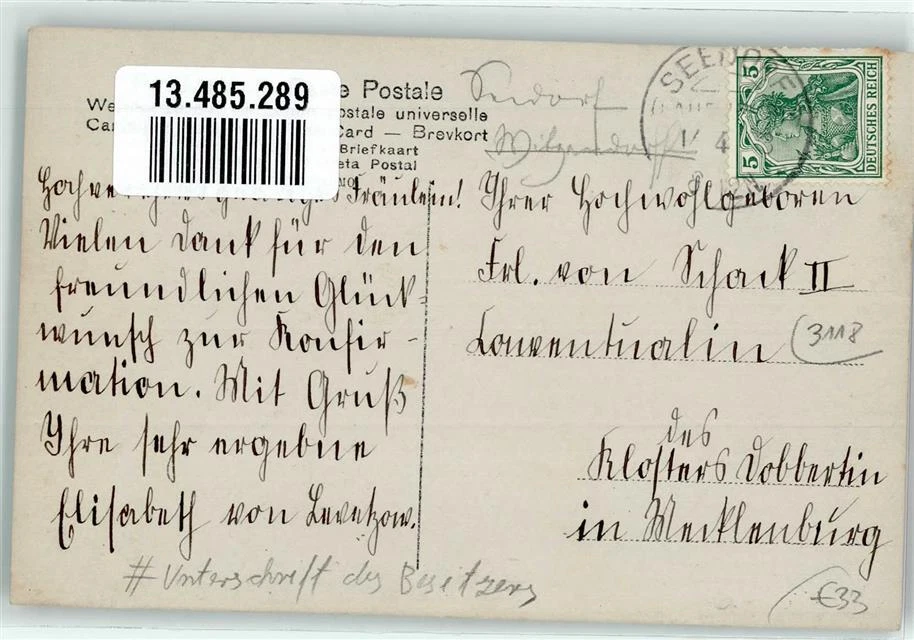 13.485.289
e Postale
We
ostale universelle
Car
Card — Brevkort
Briefkaart
eta Postal
Seedorf
Witzendorff
SEEDO
4
5
5
DEUTSCHES REICH
Fräulein!
Vielen Dank für den
freundlichen Glück-
wunsch zur Konfir-
mation. Mit Gruß
Ihre sehr ergebne
Elisabeth von Levetzow.
Ihrer Hochwohlgeboren
Frl. von Schack II
Conventualin
3118
des
Klosters Dobbertin
in Mecklenburg
# Unterschrift des Besitzers
€33